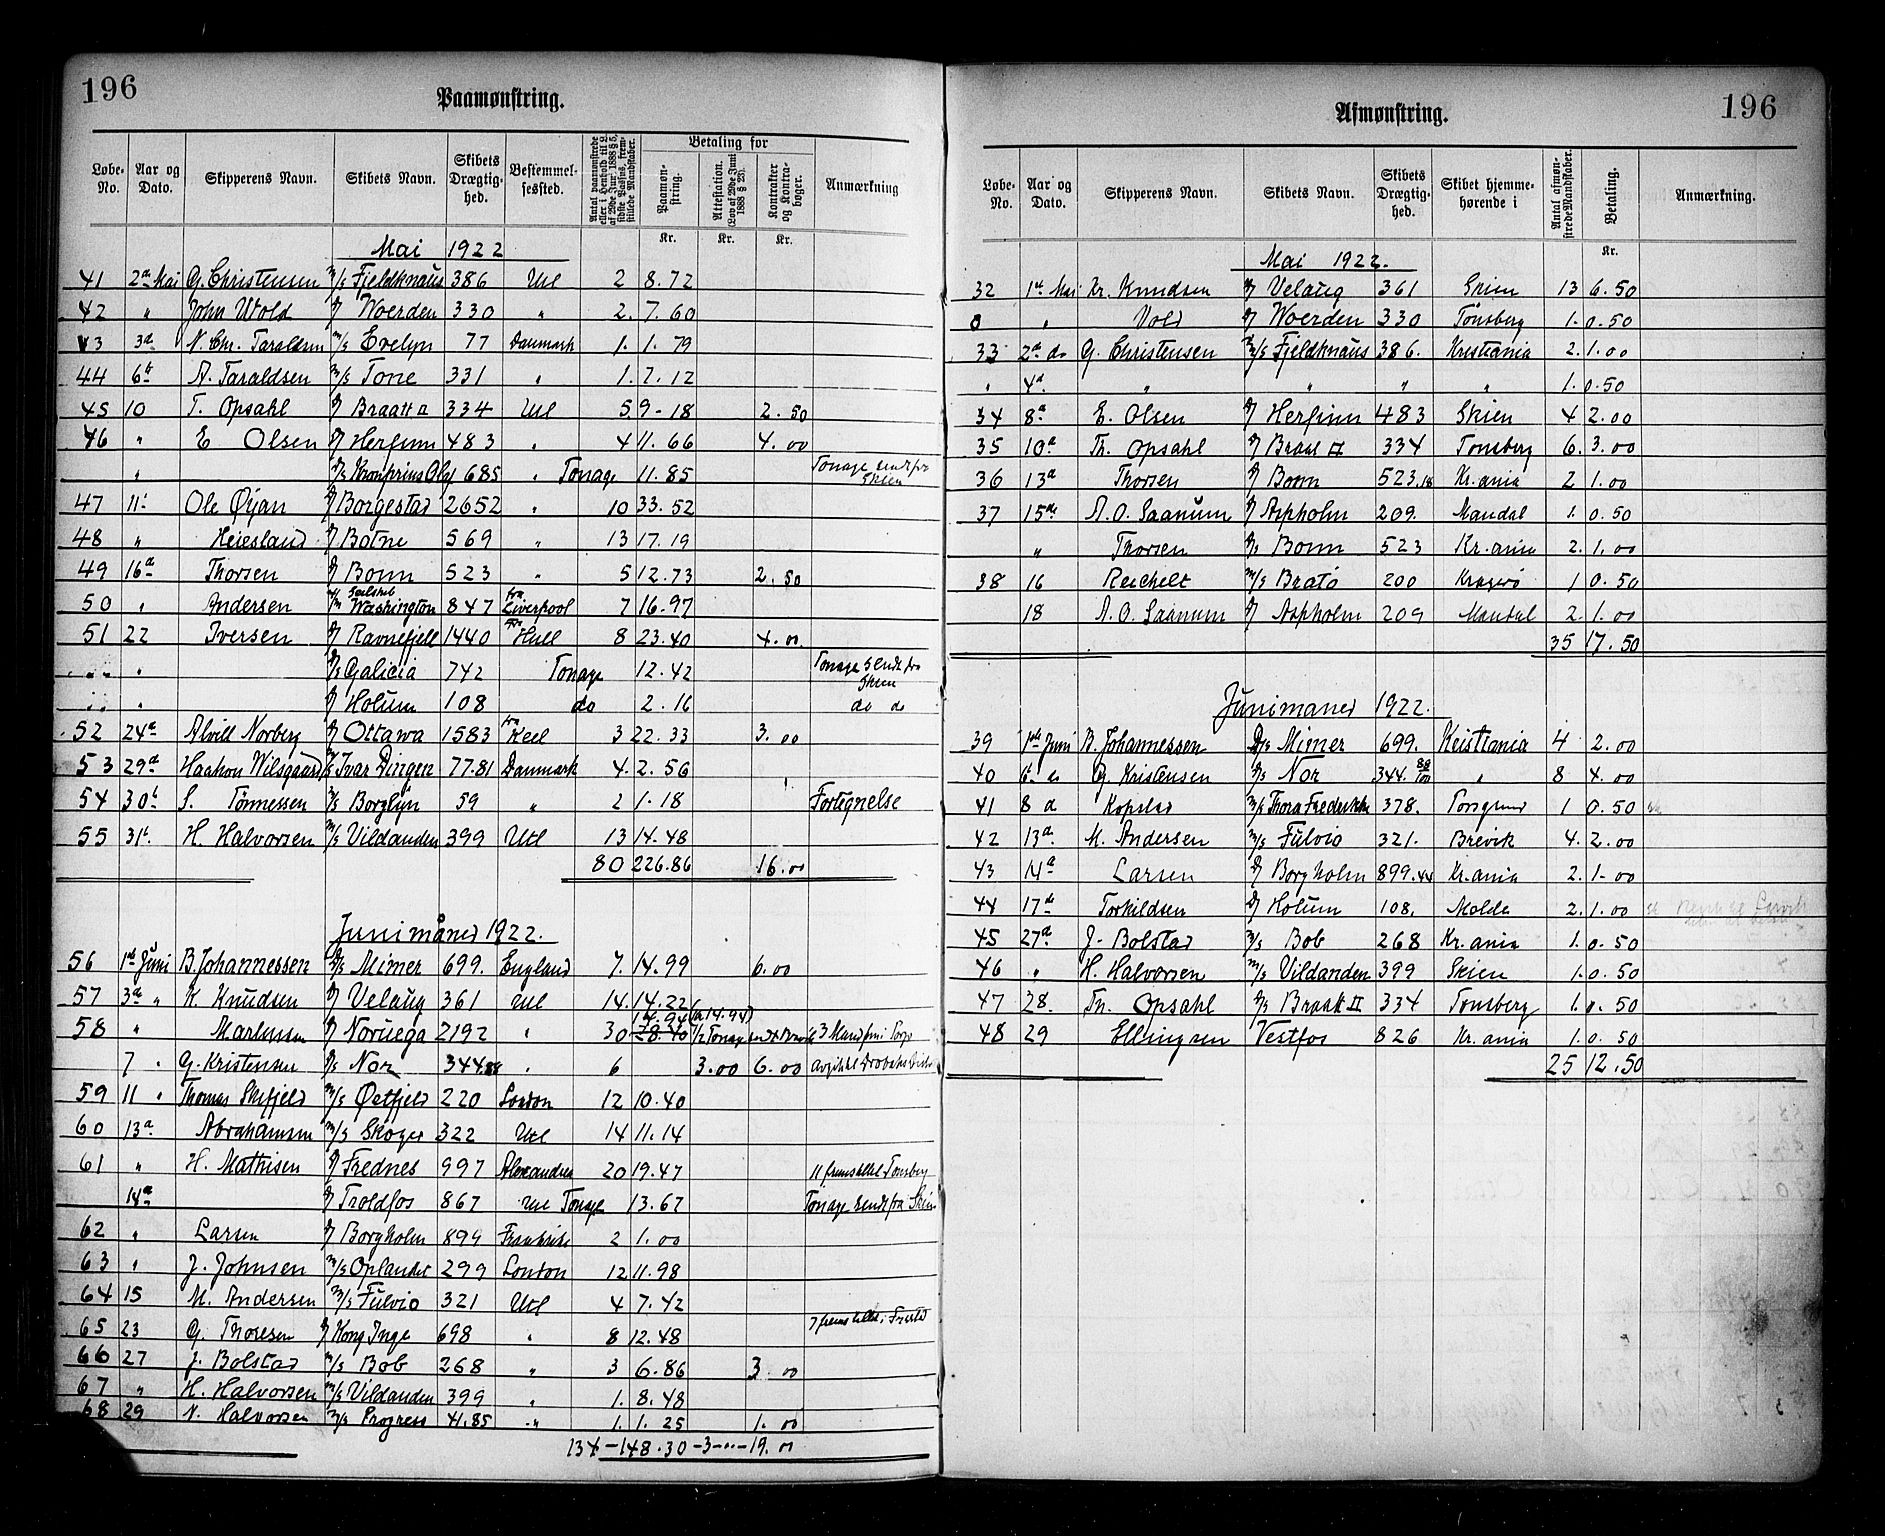 196
Paamønstring.
Løbe-No. Aar og Dato. Skipperens Navn. Skibets Navn. Skibets Drægtighed. Bestemmelsessted. Antal paamønstrede eller i Henhold til L. af 29de Juni 1888 § 5, sidste Passus, fremstillede Mandskaber. Betaling for Paamønstring. Attestation. (Lov af 29de Juni 1888 § 23). Kontrakter og Kontrabøger. Anmærkning
Kr. Kr. Kr.
Mai 1922
41 2den Mai G. Christensen M/S Fjeldknaus 386 Utl 2 8.72
42 " John Wold D/ Woerden 330 " 2. 7.60
43 3d N. Chr. Taraldsen M/S Evelyn 77 Danmark 1. 1.79
44 6t A. Taraldsen M/S Tone 331 " 1. 7.12
45 10 T. Opsahl D/ Braatt II 334 Utl 5 9-18 2.50
46 " E Olsen D/ Herfinn 483 " 4 11.66 4.00
" D/S Kronprins Olaf 685 " Tonage 11.85 Tonage sendt fra Skien
47 11t Ole Øyan D/ Borgestad 2652 " 10 33.52
48 " Heiesland D/ Botne 569 " 13 17.19
49 16d Thorsen D/ Bonn 523 " 5 12.73 2.50
50 " Andersen Seilskib Washington 847 fra Liverpool 7 16.97
51 22 Iversen D/ Ravnefjell 1440 fra Hull 8 23.40 4.00
" " D/S Galicia 742 Tonage 12.42 Tonage sendt fra Skien
" " D/ Holum 108 do 2.16 do do
52 24d Alvild Norberg D/ Ottawa 1583 fra Keel 3 22.33 3.00
53 29d Haakon Wilsgaard M/S Ivar Dingen 77.81 Danmark 4. 2.56
54 30t S. Tønnessen M/S Borglyn 59 " 2 1.18 Fortegnelse
55 31t H. Halvorsen M/S Vildanden 399 Utl 13 14.48
80 226.86 16.00
Junimåned 1922.
56 1st Juni B. Johannessen D/S Mimer 699. England 7. 14.99 6.00
57 3d " K. Knudsen D/ Velaug 361 Utl 14. 14.22
58 " Martinsen D/ Noruega 2192 " 30 14.94 (a 14.94) 1/2 Tonage
7 " G. Kristensen D/S Nor 344.88 " 6 3.00 6.00
59 11 " Thomas Skifjeld M/S Østfjeld 220 London 12 10.40
60 13d Abrahamsen M/S Skoger 322 Utl 14 11.14
61 " H. Mathisen D/ Frednes 997 Alexandria 20 19.47 11 fremstillet Tønsberg
14d D/ Troldfos 867 Utl Tonage 13.67 Tonage sendt fra Skien
62 " Larsen D/ Borgholm 899 Frankrike 2 1.00
63 " J. Johnsen M/S Oplandet 299 London 12 11.98
64 15 M. Andersen M/S Fulvio 321 Utl 4 7.42
65 23 G. Thoresen D/ Kong Inge 698 " 8 12.48 7 fremstillet i Fr.stad
66 27 J. Bolstad M/S Bob 268 " 3 6.86 3.00
67 " H. Halvorsen M/S Vildanden 399 " 1. 8.48
68 29 N. Halvorsen M/S Progress 41.85 " 1. 1.25 1.00
134-148.30-3-"-19.00
Afmønstring.
196
Løbe-No. Aar og Dato. Skipperens Navn. Skibets Navn. Skibets Drægtighed. Skibet hjemmehørende i Antal afmønstrede Mandskaber. Betaling. Anmærkning.
Kr.
Mai 1922.
32 1st Mai Kr. Knudsen D/ Velaug 361 Skien 13 6.50
0 " Vold D/ Woerden 330 Tønsberg 1. 0.50
33 2d do G. Christensen M/S Fjeldknaus 386. Kristiania 2. 1.00
" 4d " " " " 1. 0.50
34 8d E. Olsen D/ Herfinn 483 Skien 4 2.00
35 10d Th. Opsahl D/ Braat II 334 Tønsberg 6. 3.00
36 13d Thorsen D/ Bonn 523.18 Kr.ania 2 1.00
37 15de A. O. Saanum D/ Aspholm 209. Mandal 1. 0.50
" Thorsen D/S Bonn 523 Kr.ania 2. 1.00
38 16 Reichelt M/S Bratø 200 Kragerø 1 0.50
18 A. O. Saanum D/ Aspholm 209 Mandal 2. 1.00
35 17.50
Junimaned 1922.
39 1ste Juni B. Johannessen D/S Mimer 699. Kristiania 4 2.00
40 6. G. Kristensen D/S Nor 344.88 " 8 4.00
41 8 d Kopstad M/S Thora Fredrikke 378. Porsgrund 1 0.50
42 13d M. Andersen M/S Fulvio 321. Brevik 4. 2.00
43 14d Larsen D/ Borgholm 899.44 Kr.ania 2. 1-00
44 17de Torkildsen D/ Holum 108. Molde 2. 1.00
45 27d J. Bolstad M/S Bob 268 Kr.ania 1. 0.50
46 " H. Halvorsen M/S Vildanden 399 Skien 1. 0.50
47 28. Th. Opsahl D/S Braatt II 334 Tønsberg 1. 0.50
48 29 Ellingsen Vestfos 826 Kr.ania 1. 0.50
25 12.50